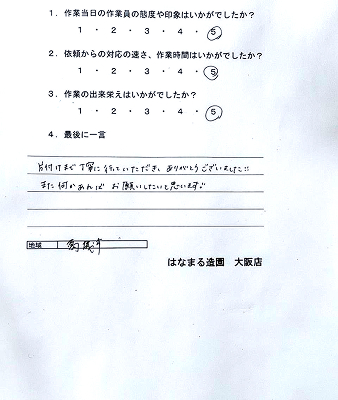 1．作業当日の作業員の態度や印象はいかがでしたか？
1 ・ 2 ・ 3 ・ 4 ・ 5
2．依頼からの対応の速さ、作業時間はいかがでしたか？
1 ・ 2 ・ 3 ・ 4 ・ 5
3．作業の出来栄えはいかがでしたか？
1 ・ 2 ・ 3 ・ 4 ・ 5
4．最後に一言
片付けまで丁寧に行っていただき、ありがとうございました!!
また何かあれば お願いしたいと思います。
地域
はなまる造園 大阪店